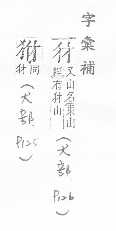 字彙補
犲又山名東山
經有犲山
(犬部P126)
同犲
(犬部P125)